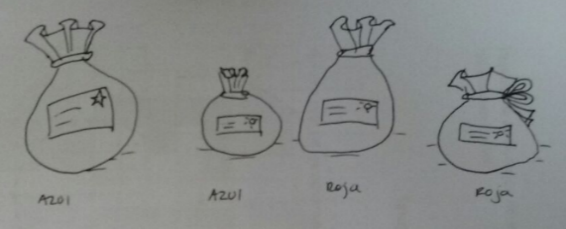 Azul
Azul
Roja
Roja